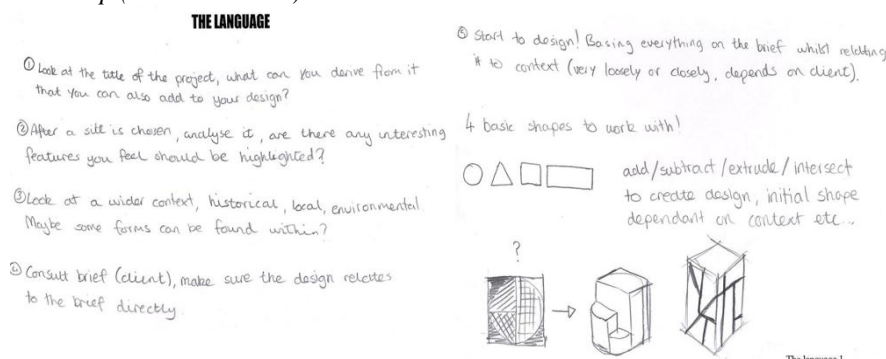 THE LANGUAGE
① Look at the title of the project, what can you derive from it
that you can also add to your design?
② After a site is chosen, analyse it, are there any interesting
features you feel should be highlighted?
③ Look at a wider context, historical, local, environmental
Maybe some forms can be found within?
④ Consult brief (client), make sure the design relates
to the brief directly.
⑤ Start to design! Basing everything on the brief whilst relating
it to context (very loosely or closely, depends on client).
4 basic shapes to work with!
add/subtract/extrude/intersect
to create design, initial shape
dependant on context etc...
?